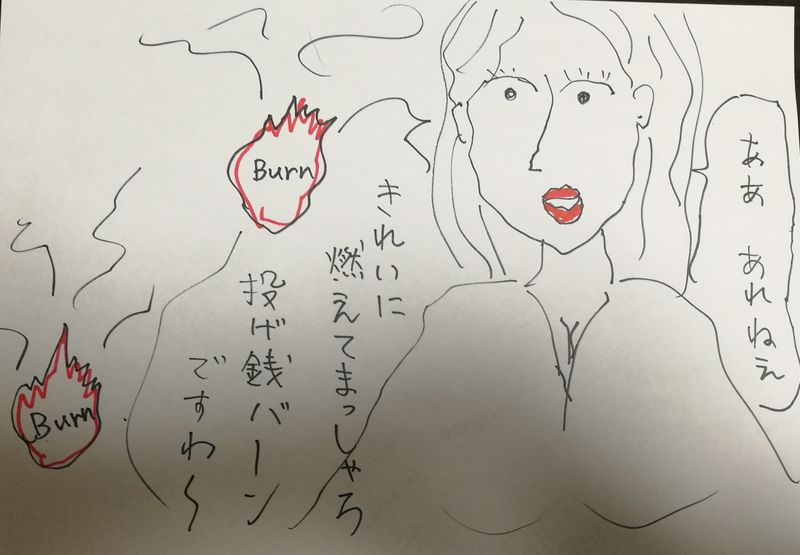 ああ あれねぇ
きれいに
燃えてまっしゃろ
投げ銭バーン
ですわ〜
Burn
Burn